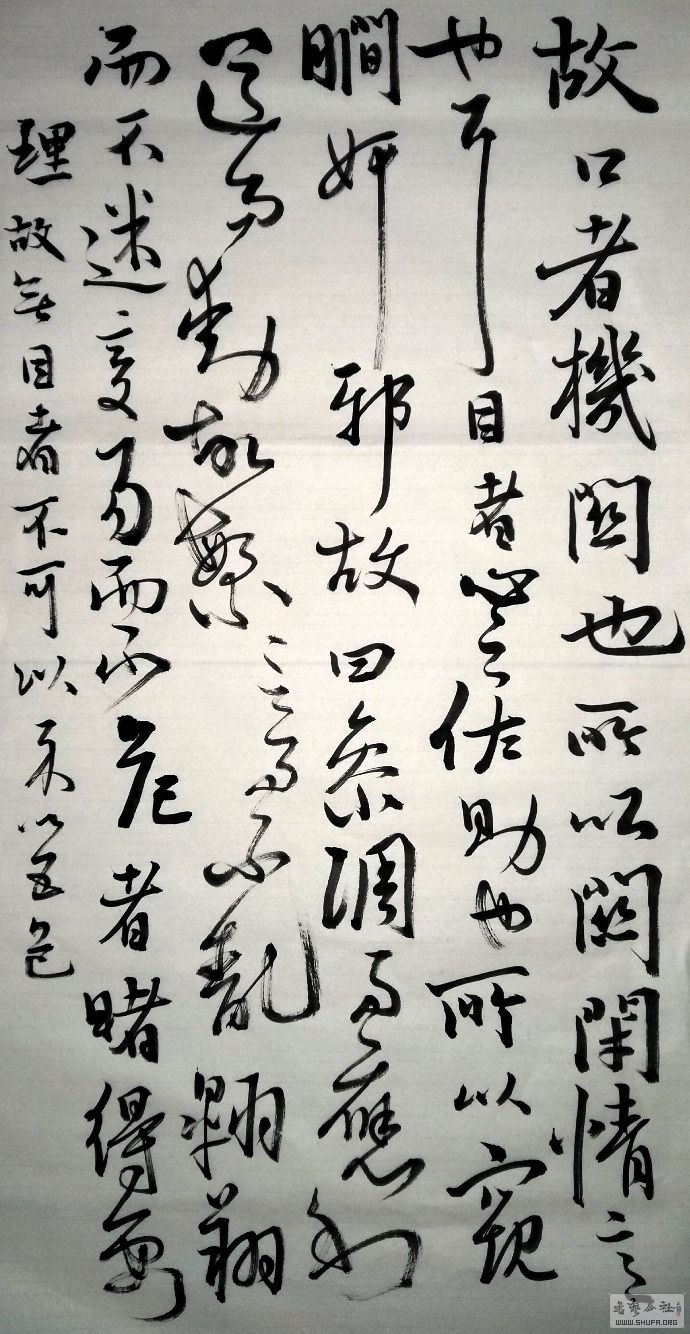 故口者機關也所以關閉情意
也耳目者心之佐助也所以窺
瞯奸邪故曰參調而應利
道而動故繁言而不亂翱翔
而不迷變易而不危者睹得要
理故無目者不可以示以五色
書藝公社
WWW.SHUFA.ORG